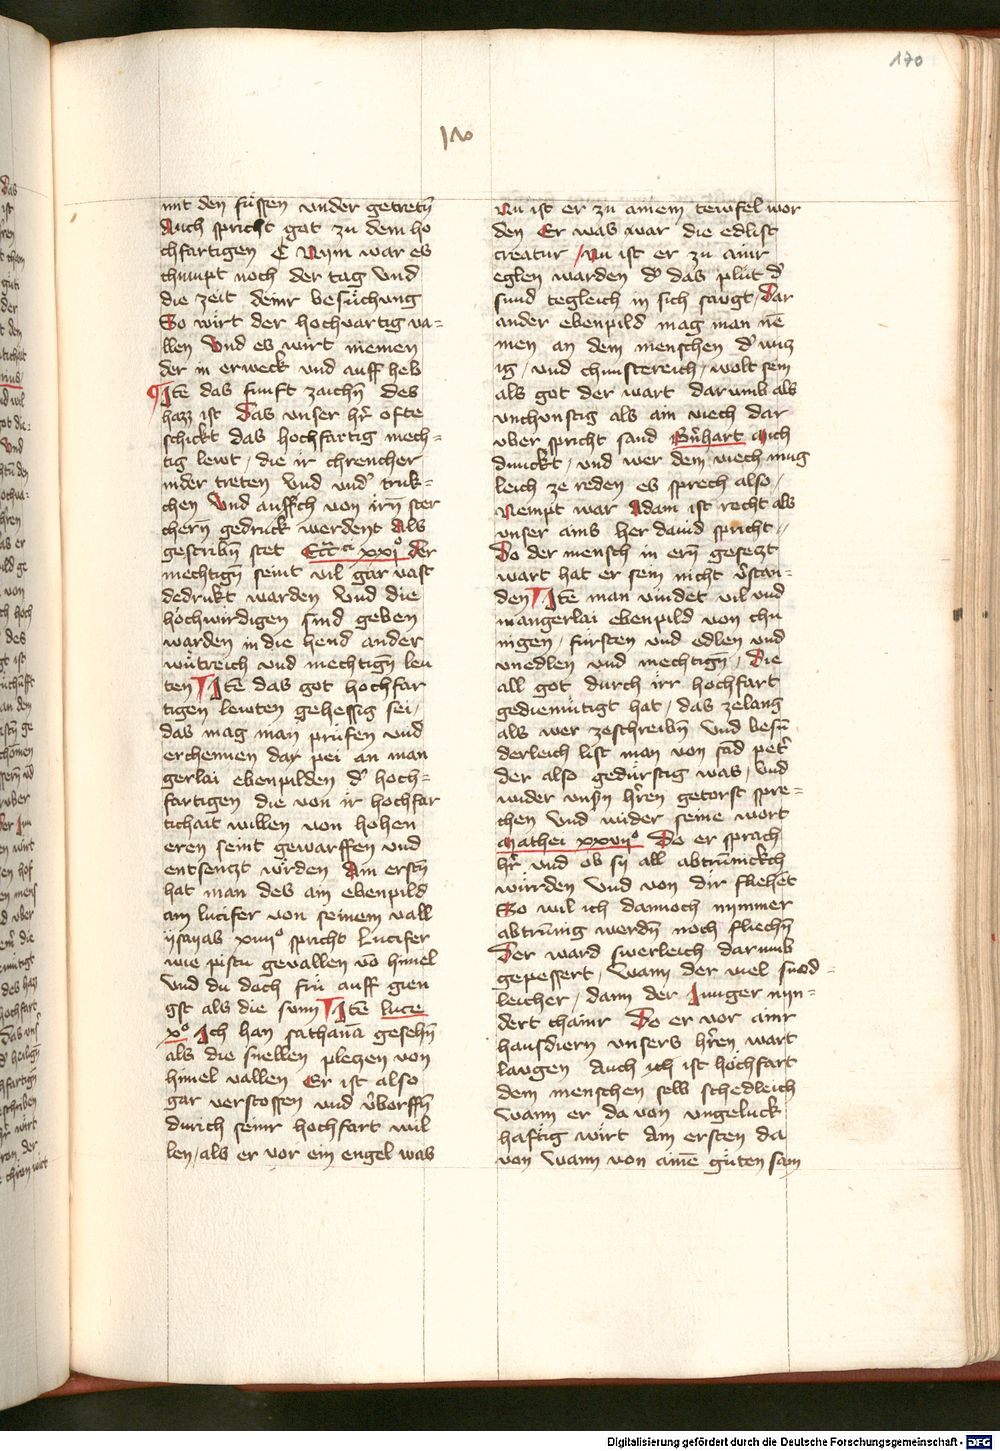 170
mit den füssen vnder getretn̄
Auch spricht got zu dem ho
chfartigen Nym war es
chumpt noch der tag vnd
die zeit deinr besüchung
So wirt der hochvartig va=
llen Vnd es wirt niemen
der in erweck vnd auff heb
Itē das funft zaichn̄ des
hazz ist Das vnser hr̄ ofte
schickt das hochfartig mech=
tig lewt, die ir chrencher
nider treten Vnd vnd' truk=
chen Vnd auffch von irn̄ ster
chern gedruck werdent Als
gestribn̄ stet Ecc̄ci xxio Der
mechtign̄ seint vil gar vast
dedrukt warden Vnd die
höchwirdigen sind geben
warden in die hend ander
wütreich vnd mechtign̄ leu
ten Itē das got hochfar
tigen lewten gehessig sei,
das mag man prüfen vnd
erchennen dar pei an man
gerlai ebenpilden d' hoch=
fartigen die von ir hochfar
tichait willen von hohen
eren seint gewarffen vnd
entseczt wörden Am erstn̄
hat man des ain ebenpild
am lucifer von seinem vall
ysayas xiiijo spricht Lucifer
wie pistu gevallen vō himel
Vnd du doch frü auff gien
gst als die sunn Itē luce
xo Ich han sathanā gesehn̄
als die snellen pleczen von
himel vallen Er ist also
gar verstossen vnd v̄borffn̄
durich seinr hochfart wil
len, als er vor ein engel was
Nu ist er zu ainem tewfel wor
den Er was war die edlist
creatur / Nu ist er zu ainr
eglen warden d' das plüt d'
sund tegleich in sich saugt, Dar
ander ebenpild mag man nē
men an dem menschen d' wicz
ig, vnd chunstereich, wolt sein
als got der wart darumb als
vnchunstig als ain viech dar
vber spricht sand Bn̄hart Mich
dunckt, vnd wer dem viech mug
leich ze reden es sprech also,
Nempt war Adam ist recht als
vnser ains her dauid spricht
Do der mensch in ern̄ geseczt
wart hat er sein nicht v̄stan=
den Itē man vindet vil vnd
mangerlai ebenpild von chu
nigen, fürsten vnd edlen vnd
vnedlen vnd mechtign̄, Die
all got durch irr hochfart
gediemütigt hat, das zelang
als wer zeschreibn̄ Vnd besū
derleich list man von sād pet'
der also gedürstig was, Vnd
wider vnsn̄ hr̄ren getorst spre=
chen Vnd wider seine wort
Mathei xxvijo Do er sprach
hr̄ vnd ob sy all abtrünickch
würrden Vnd von dir fliehēt
So wil ich dannoch nymmer
abtrünig werdn̄ noch fliechn̄
Der ward swerleich darumb
gepessert, Wann der viel snod=
leicher, dann der Iunger nyn=
dert thainr Do er vor ainr
hausdiern vnsers hr̄ren wart
laugen Auch ich ist höchfart
dem menschen selb schedleich
Wann er da von vngeluck
haftig wirt Am ersten da
von Wann von ainē güten sam
Digitalisierung gefördert durch die Deutsche Forschungsgemeinschaft - DFG